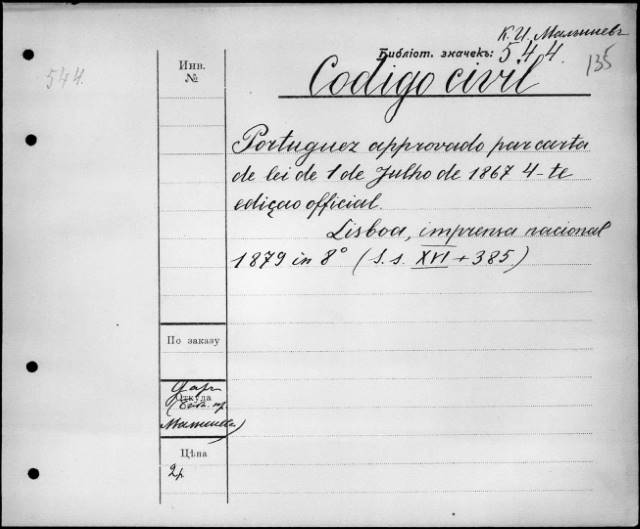 К. И. Малышевъ
Библіот. значекъ: 544.
135
544.
Инв.
№
Codigo civil
Portuguez approvado par carta
de lei de 1 de Julho de 1867 4-te
ediçao official.
Lisboa, imprensa nacional
1879 in 8° (S. s. XVI + 385)
По заказу
Откуда
Даръ
Малышева)
Цѣна
2р